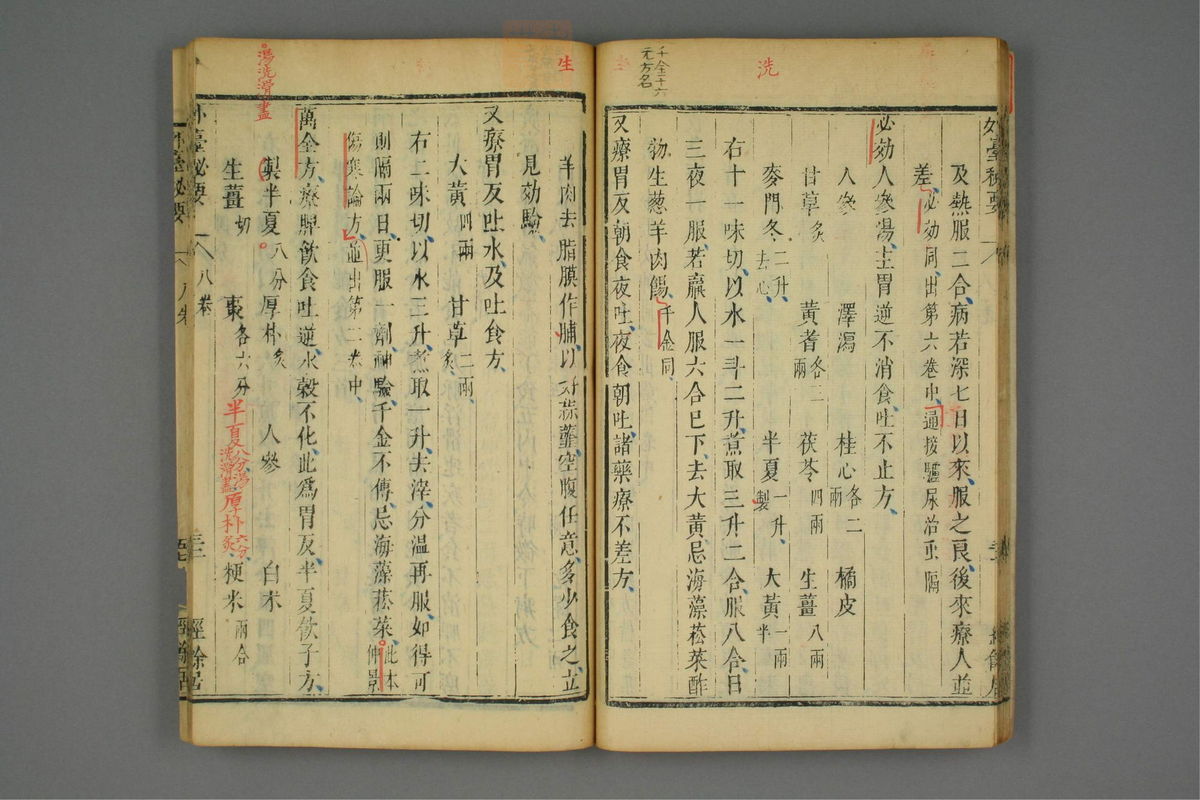 外臺秘要
及熱服二合病若深七日以來服之良後來療人並
差必効同出第六卷中通按驢尿治重隔
必効人參湯主胃逆不消食吐不止方
人參 澤瀉 桂心各二兩 橘皮
甘草炙 黃耆各三兩 茯苓四兩 生薑八兩
麥門冬二升去心 半夏一升製 大黃一兩半
右十一味切以水一斗二升煮取三升二合服八合日
三夜一服若羸人服六合巳下去大黃忌海藻菘菜酢
物生葱羊肉餳千金同
又療胃反朝食夜吐夜食朝吐諸藥療不差方
洗
千金十六
元方名
生
羊肉去脂膜作脯以好蒜虀空腹任意多少食之立
見効驗
又療胃反吐水及吐食方
大黃四兩 甘草二兩炙
右二味切以水三升煮取一升去滓分溫再服如得可
則隔兩日更服一劑神驗千金不傳忌海藻菘菜此本仲景
傷寒論方並出第二卷中
萬全方療脾飲食吐逆水穀不化此爲胃反半夏飲子方
製半夏八分 厚朴炙 人參 白朮
生薑切 棗各六分 粳米兩合
湯洗滑盡
半夏八分湯洗滑盡厚朴六分炙
外臺秘要 八卷 經餘居